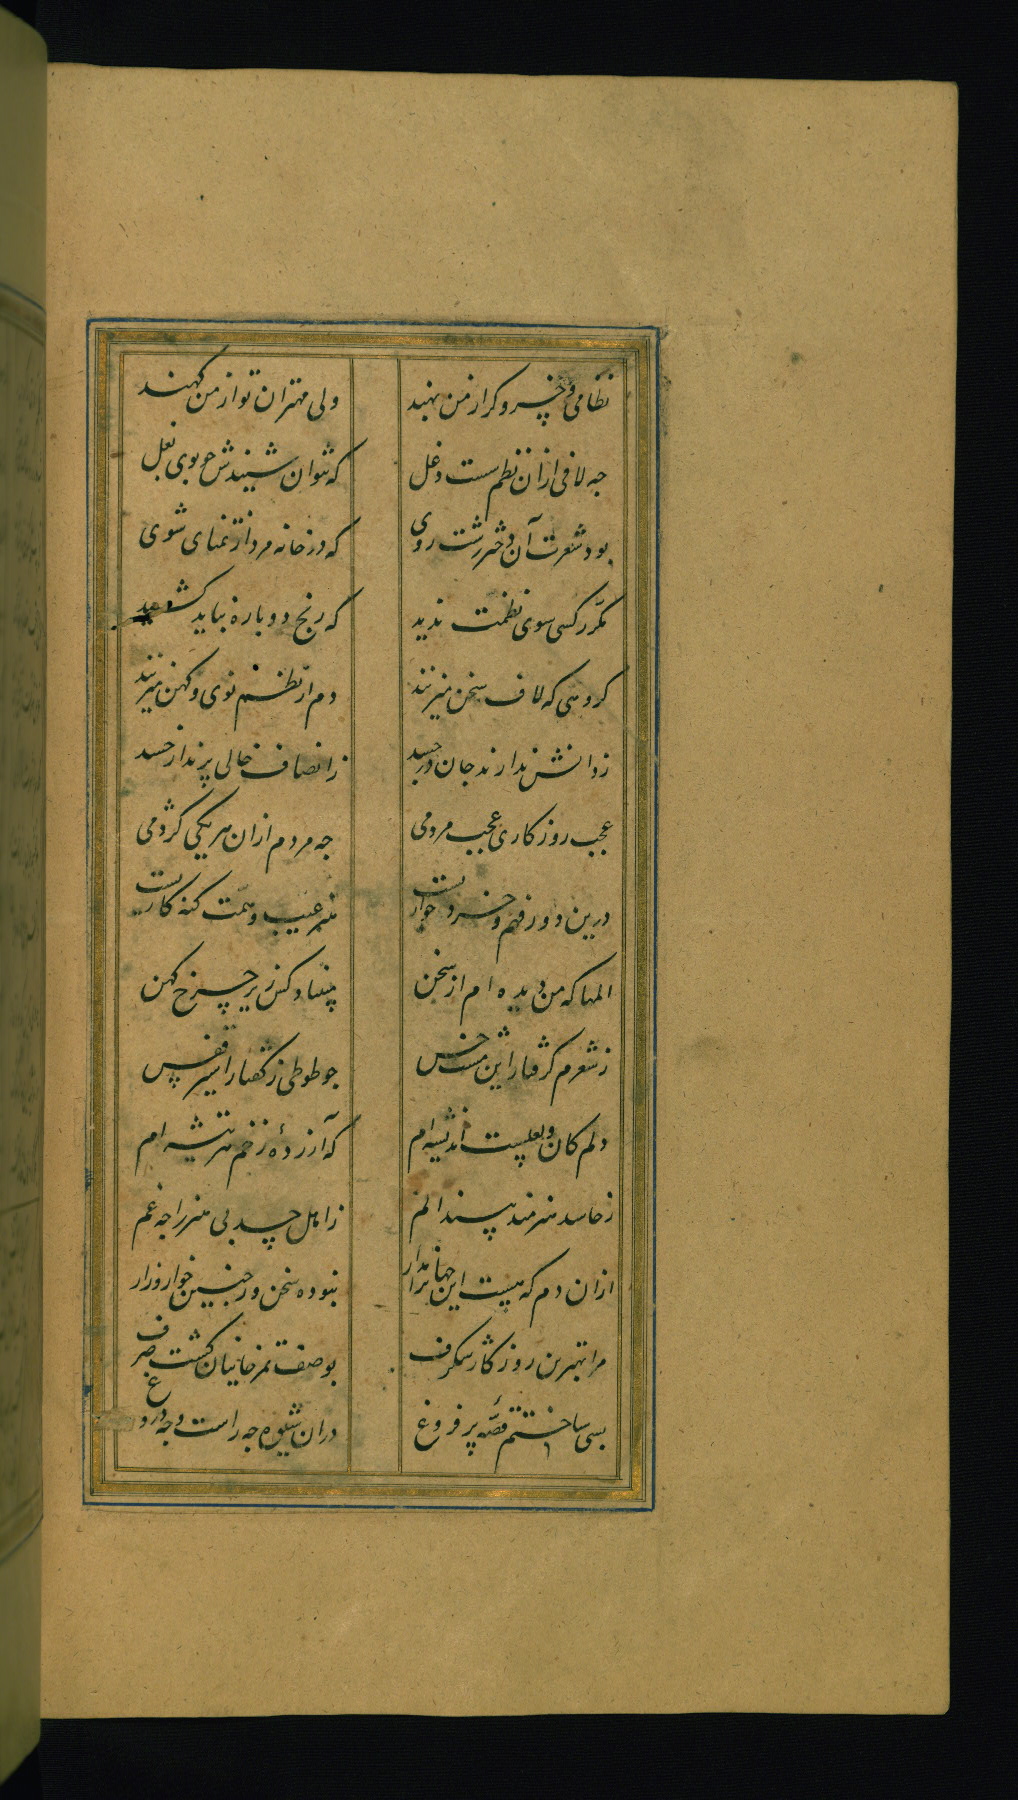 نظامی و خسرو کر از من بهند ولی مهتران تو از من کهند
جه لافی ازان نظم سست دغل که نتوان شنیدش جو بوی بغل
بود شعرت آن دختر زشت روی که در خانه مرد از تمنای شوی
مکرّر کسی سوی نظمت ندید که رنج دوباره نباید کشید
کروهی که لاف سخن میزنند دم از نظم نوی و کهن میزنند
ز دانش ندارند جان در جسد ز انصاف خالی پرند از حسد
عجب روزکاری عجب مردمی جه مردم ازان هر یکی کژدمی
درین دور فهم و خرد خواریست هنر عیب و همت کنه کاریست
المها که من دیده ام از سخن میناد کس زیر چرخ کهن
ز شعرم کرفتار این مشت خس جو طوطی ز کفتار اسیر قفس
دلم کان و لعلست اندیشه ام که آزردهٔ زخم هر تیشه ام
ز حاسد هنرمند بیند الم ز اهل حسد بی هنر را جه غم
ازان دم که هست این جهانرا مدار نبوده سخن در جنین خوار و زار
مرا بهترین روزکار شکرف بوصف تمرخانیان کشت صرف
بسی ساختم قصّه پر فروغ دران شیوه جه راست و جه دروغ